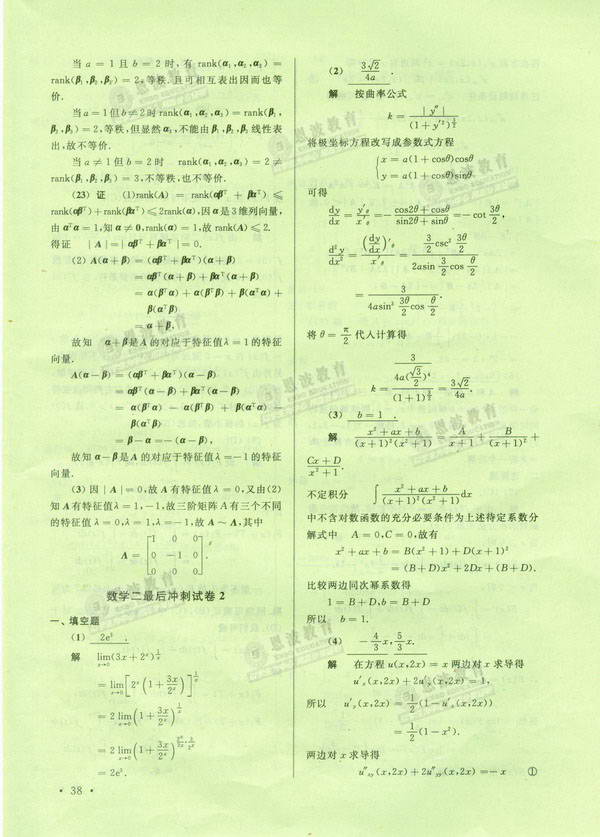 当 a = 1 且 b = 2 时, 有 rank(α₁,α₂,α₃) =
rank(β₁,β₂,β₃) = 2, 等秩. 且可相互表出因而也等
价.
当 a = 1 但 b ≠ 2 时 rank(α₁,α₂,α₃) = rank(β₁,
β₂,β₃) = 2, 等秩, 但显然 α₃, 不能由 β₁,β₂,β₃ 线性表
出, 故不等价.
当 a ≠ 1 但 b = 2 时 rank(α₁,α₂,α₃) = 2 ≠
rank(β₁,β₂,β₃) = 3, 不等秩, 也不等价.
(23) 证 (1)rank(A) = rank(αβᵀ + βαᵀ) ≤
rank(αβᵀ)+rank(βαᵀ)≤2rank(α), 因 α 是 3 维列向量,
由 αᵀα = 1, 知 α ≠ 0, rank(α) = 1, 故 rank(A) ≤ 2.
得证 | A | = | αβᵀ + βαᵀ | = 0.
(2) A(α + β) = (αβᵀ + βαᵀ)(α + β)
= αβᵀ(α + β) + βαᵀ(α + β)
= α(βᵀα) + α(βᵀβ) + β(αᵀα) +
β(αᵀβ)
= α + β,
故知 α + β 是 A 的对应于特征值 λ = 1 的特征
向量.
A(α − β) = (αβᵀ + βαᵀ)(α − β)
= αβᵀ(α − β) + βαᵀ(α − β)
= α(βᵀα) − α(βᵀβ) + β(αᵀα) −
β(αᵀβ)
= β − α = −(α − β),
故知 α − β 是 A 的对应于特征值 λ = −1 的特征
向量.
(3) 因 | A | = 0, 故 A 有特征值 λ = 0, 又由(2)
知 A 有特征值 λ = 1, −1, 故三阶矩阵 A 有三个不同
的特征值 λ = 0, λ = 1, λ = −1, 故 A ~ Λ, 其中
Λ = [1 0 0
0 −1 0
0 0 0]
数学二最后冲刺试卷 2
一、填空题
(1) 2e³ .
解 lim(x→0)(3x + 2ˣ)^(1/x)
= lim(x→0)[2ˣ(1 + 3x/2ˣ)]^(1/x)
= 2 lim(x→0)(1 + 3x/2ˣ)^(1/x)
= 2 lim(x→0)(1 + 3x/2ˣ)^(2ˣ/3x · 3/2ˣ)
= 2e³.
· 38 ·
(2) 3√2/4a .
解 按曲率公式
k = | y″ | / (1 + y′²)^(3/2)
将极坐标方程改写成参数式方程
{x = a(1 + cosθ)cosθ
y = a(1 + cosθ)sinθ
可得
dy/dx = y′θ/x′θ = − (cos2θ + cosθ)/(sin2θ + sinθ) = − cot 3θ/2,
d²y/dx² = (dy/dx)′θ / x′θ = (3/2 csc² 3θ/2) / (2asin 3θ/2 cos θ/2)
= 3 / (4asin³ 3θ/2 cos θ/2)
将 θ = π/2 代人计算得
k = (3 / 4a(√3/2)⁴) / (1 + 1)^(3/2) = 3√2/4a.
(3) b = 1 .
解 (x² + ax + b)/((x + 1)²(x² + 1)) A/(x + 1) + B/(x + 1)² +
(Cx + D)/(x² + 1).
不定积分 ∫ (x² + ax + b)/((x + 1)²(x² + 1)) dx
中不含对数函数的充分必要条件为上述待定系数分
解式中 A = 0, C = 0, 故有
x² + ax + b = B(x² + 1) + D(x + 1)²
= (B + D)x² + 2Dx + (B + D).
比较两边同次幂系数得
1 = B + D, b = B + D,
所以 b = 1.
(4) − 4/3 x, 5/3 x.
解 在方程 u(x,2x) = x 两边对 x 求导得
u′ₓ(x,2x) + 2u′ᵧ(x,2x) = 1,
所以 u′ᵧ(x,2x) = 1/2 (1 − u′ₓ(x,2x))
= 1/2 (1 − x²).
两边对 x 求导得
u″ₓᵧ(x,2x) + 2u″ᵧᵧ(x,2x) = − x ①